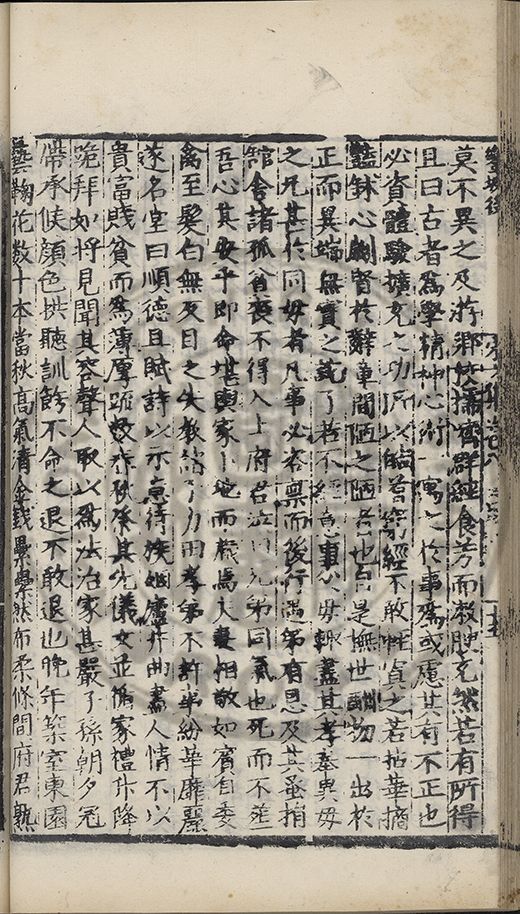 莫不異之及游鄉校擩嚌群經食芳而漱腴充然若有所得
且曰古者為學精神心術一寓之於事為或慮其有不正也
必資體驗擴充之功所以窮經不敢輕賞之若拈華摘
豔鉥心劌腎於辭章間陋之陋者也自是撫世酬物一出於
正而異端無實之說了若不經意事父母輙盡其孝基異母
之兄其於同母者凡事必咨禀而後行遇弟有恩及其蚤捐
館舍諸孤貧喪不得入土府君泣曰兄弟同氣也死而不葬
吾心其安乎即命堪輿家卜地而葬焉夫妻相敬如賓自委
禽至髮白無反目之失教諸子力田孝弟不許半紛華靡麗
遂名室曰順德且賦詩以示意待族姻廬井曲盡人情不以
貴富賤貧而為薄厚踈祭其先儀文並循家禮升降
跪拜如將見聞其容聲人取以為法治家甚嚴子孫朝夕冠
帶承候顏色拱聽訓餙不命之退不敢退也晚年築室東園
藝鞠花数十本當秋高氣清金錢纍纍然布柔條間府君熟